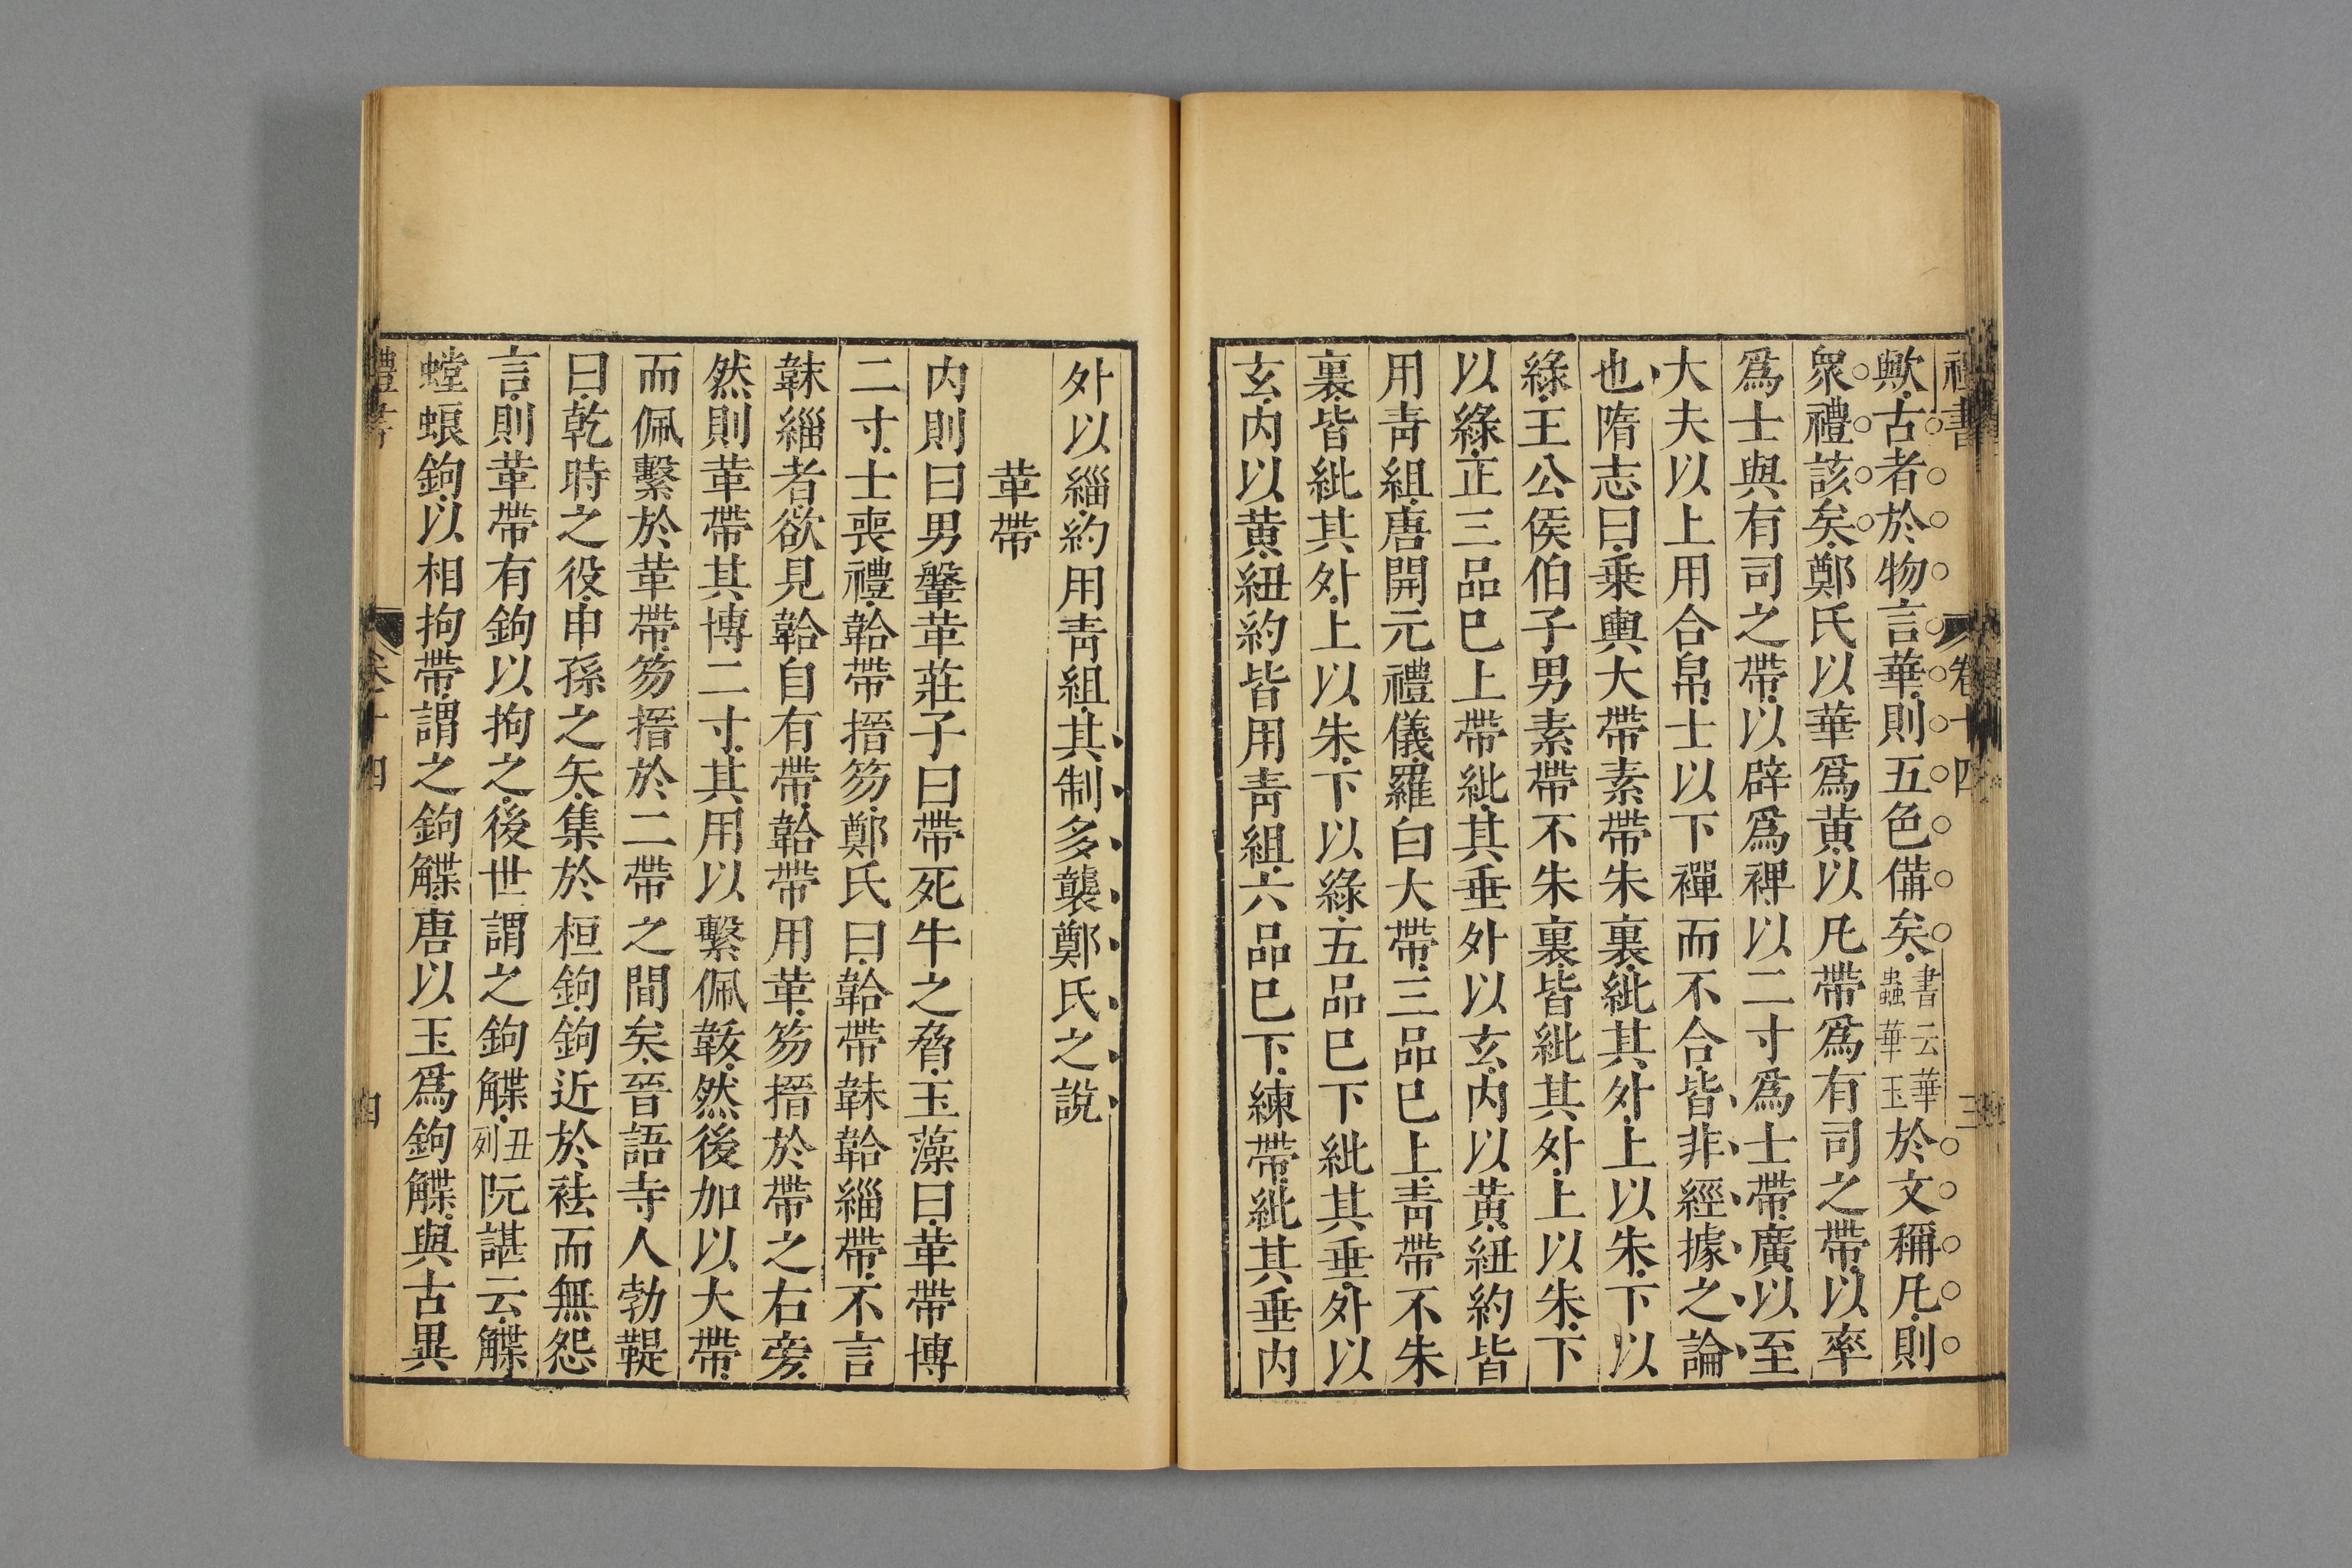 禮書
卷十四
三
歟古者於物言華則五色備矣書云華蟲華玉於文稱凡則
衆禮該矣鄭氏以華爲黄以凡帶爲有司之帶以率
爲士與有司之帶以辟爲裨以二寸爲士帶廣以至
大夫以上用合帛士以下禪而不合皆非經據之論
也隋志曰乗輿大帶素帶朱裏紕其外上以朱下以
綠王公侯伯子男素帶不朱裏皆紕其外上以朱下
以綠正三品巳上帶紕其垂外以玄内以黄紐約皆
用靑組唐開元禮儀羅白大帶三品巳上靑帶不朱
裏皆紕其外上以朱下以綠五品巳下紕其垂外以
玄内以黄紐約皆用靑組六品巳下練帶紕其垂内
外以緇約用靑組其制多襲鄭氏之說
革帶
内則曰男鞶革莊子曰帶死牛之脅玉藻曰革帶博
二寸士喪禮韐帶搢笏鄭氏曰韐帶韎韐緇帶不言
韎緇者欲見韐自有帶韐帶用革笏搢於帶之右旁
然則革帶其博二寸其用以繫佩韍然後加以大帶
而佩繫於革帶笏搢於二帶之間矣晉語寺人勃鞮
曰乾時之役申孫之矢集於桓鉤鉤近於袪而無怨
言則革帶有鉤以拘之後世謂之鉤䚢丑列阮諶云䚢
螳蜋鉤以相拘帶謂之鉤䚢唐以玉爲鉤䚢與古異
禮書
卷十四
四